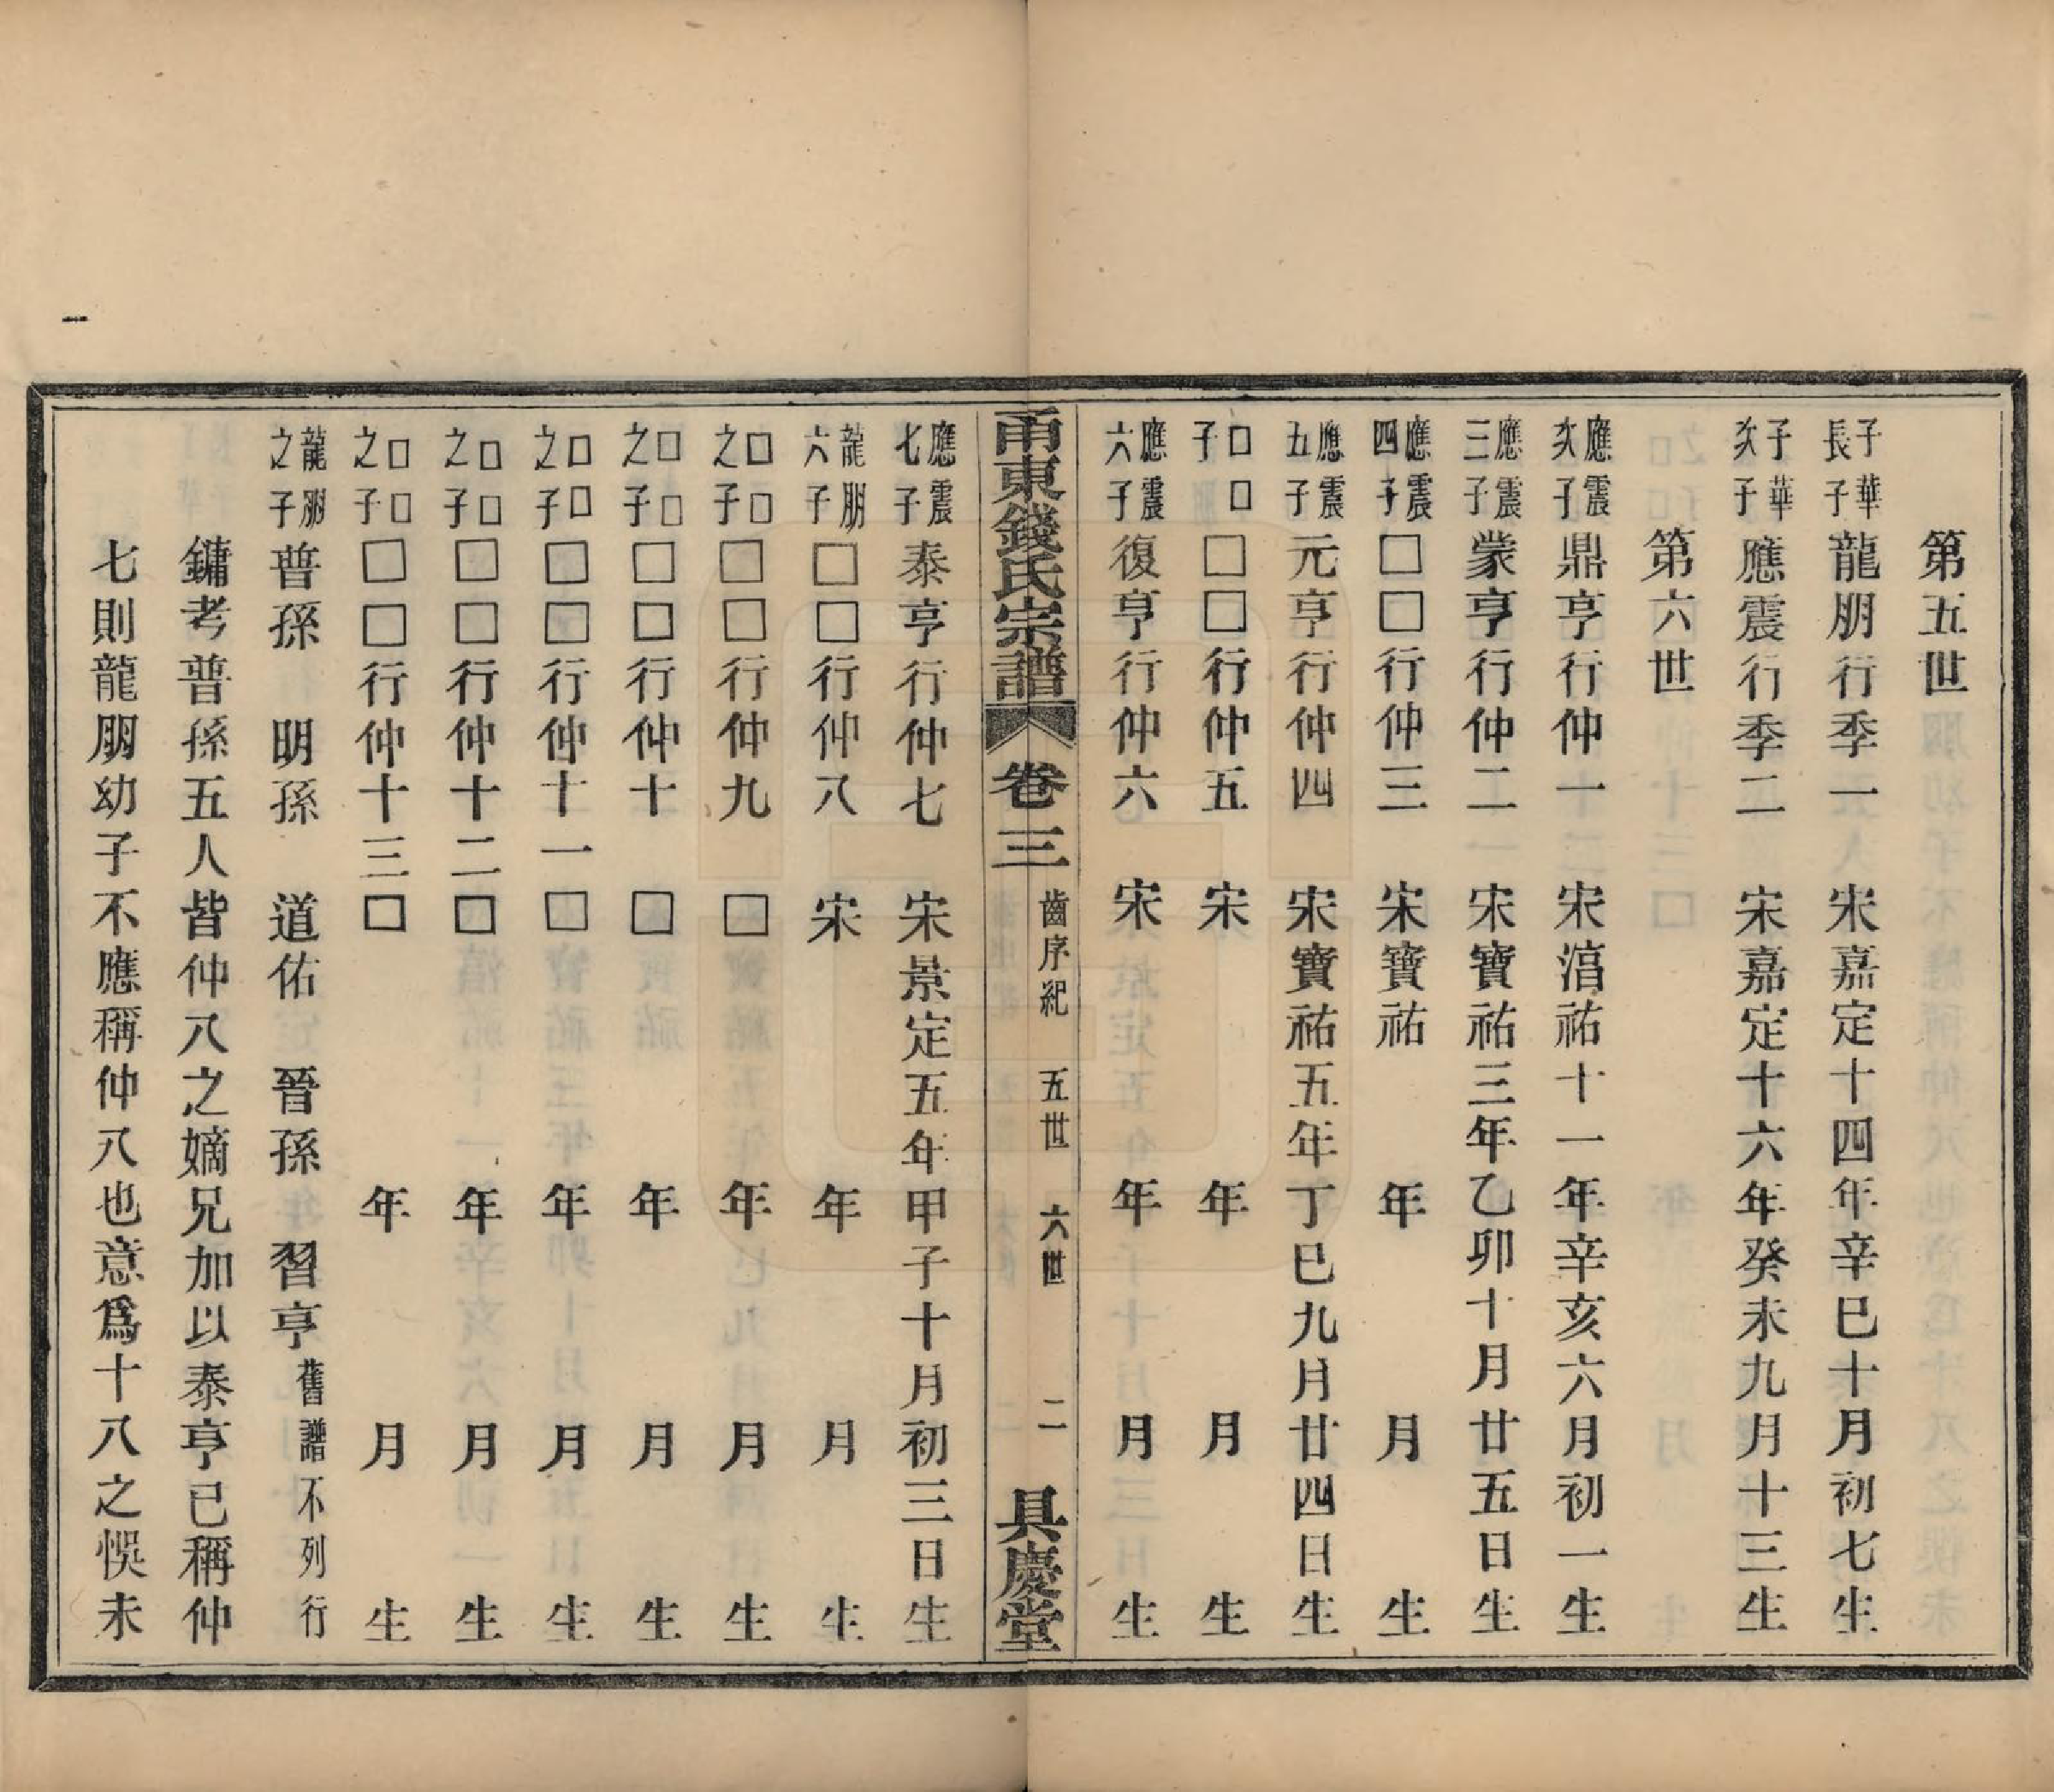 第五世
子華長子龍朋行季一　宋嘉定十四年辛巳十月初七生
子華次子應震行季二　宋嘉定十六年癸未九月十三生
第六世
應震次子鼎亨行仲一　宋湻祐十一年辛亥六月初一生
應震三子蒙亨行仲二　宋寶祐三年乙卯十月廿五日生
應震四子□□行仲三　宋寶祐　年　月　生
應震五子元亨行仲四　宋寶祐五年丁巳九月廿四日生
□□子□□行仲五　宋　年　月　生
應震六子復亨行仲六　宋　年　月　生
甬東錢氏宗譜　卷三　齒序紀　五世　六世　二　具慶堂
應震七子泰亨行仲七　宋景定五年甲子十月初三日生
龍朋六子□□行仲八　宋　年　月　生
□□之子□□行仲九　□　年　月　生
□□之子□□行仲十　□　年　月　生
□□之子□□行仲十一□　年　月　生
□□之子□□行仲十二□　年　月　生
□□之子□□行仲十三□　年　月　生
龍朋之子普孫　明孫　道佑　晉孫　習亨舊譜不列行
鏞考普孫五人皆仲八之嫡兄加以泰亨已稱仲
七則龍朋幼子不應稱仲八也意爲十八之悞未